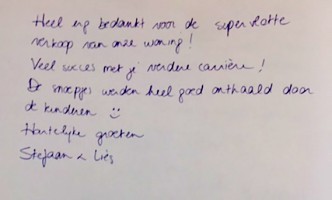 Heel erg bedankt voor de super vlotte
verkoop van onze woning!
Veel succes met je verdere carrière!
De snoepjes werden heel goed onthaald door
de kinderen ☺
Hartelijke groeten
Stefaan & Lies